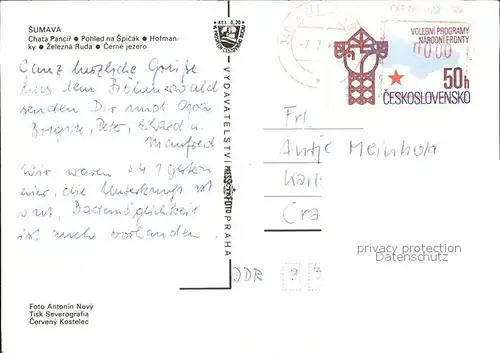 ŠUMAVA
Chata Pancíř ● Pohled na Špičák ● Hofman-
ky ● Železná Ruda ● Černé jezero
Ganz herzliche Grüße
aus dem Böhmerwald
senden Dir und Opa
Brigitte, Peter, u.
Manfred
Wir waren
hier, die Unterkunft ist
gut, Bademöglichkeit
ist auch vorhanden.
Foto Antonín Nový
Tisk Severografia
Červený Kostelec
KČS 0,20
VYDAVATELSTVÍ PRESSFOTO PRAHA
VOLEBNÍ PROGRAMY
NÁRODNÍ FRONTY
50h
ČESKOSLOVENSKO
Frl.
Antje Meinhold
Karl
Cra
DDR 9
privacy protection
Datenschutz